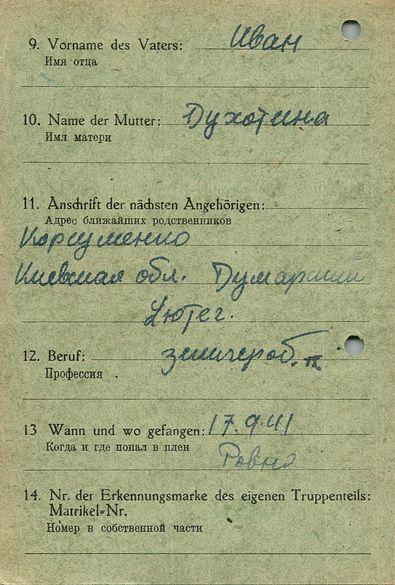 9. Vorname des Vaters: Иван
Имя отца
10. Name der Mutter: Духотина
Имя матери
11. Anschrift der nächsten Angehörigen:
Адрес ближайших родственников
Киевская обл.
12. Beruf:
Профессия
13 Wann und wo gefangen: 17.9.41
Когда и где попал в плен Ровно
14. Nr. der Erkennungsmarke des eigenen Truppenteils:
Matrikel-Nr.
Номер в собственной части